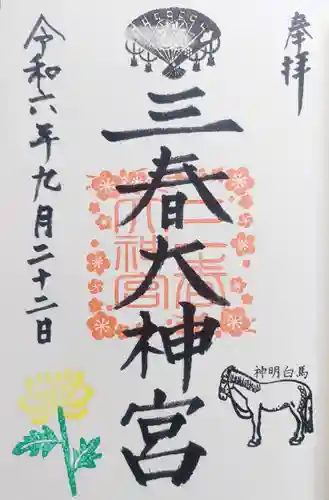 奉拝
三春大神宮
令和六年九月二十二日
神明白馬